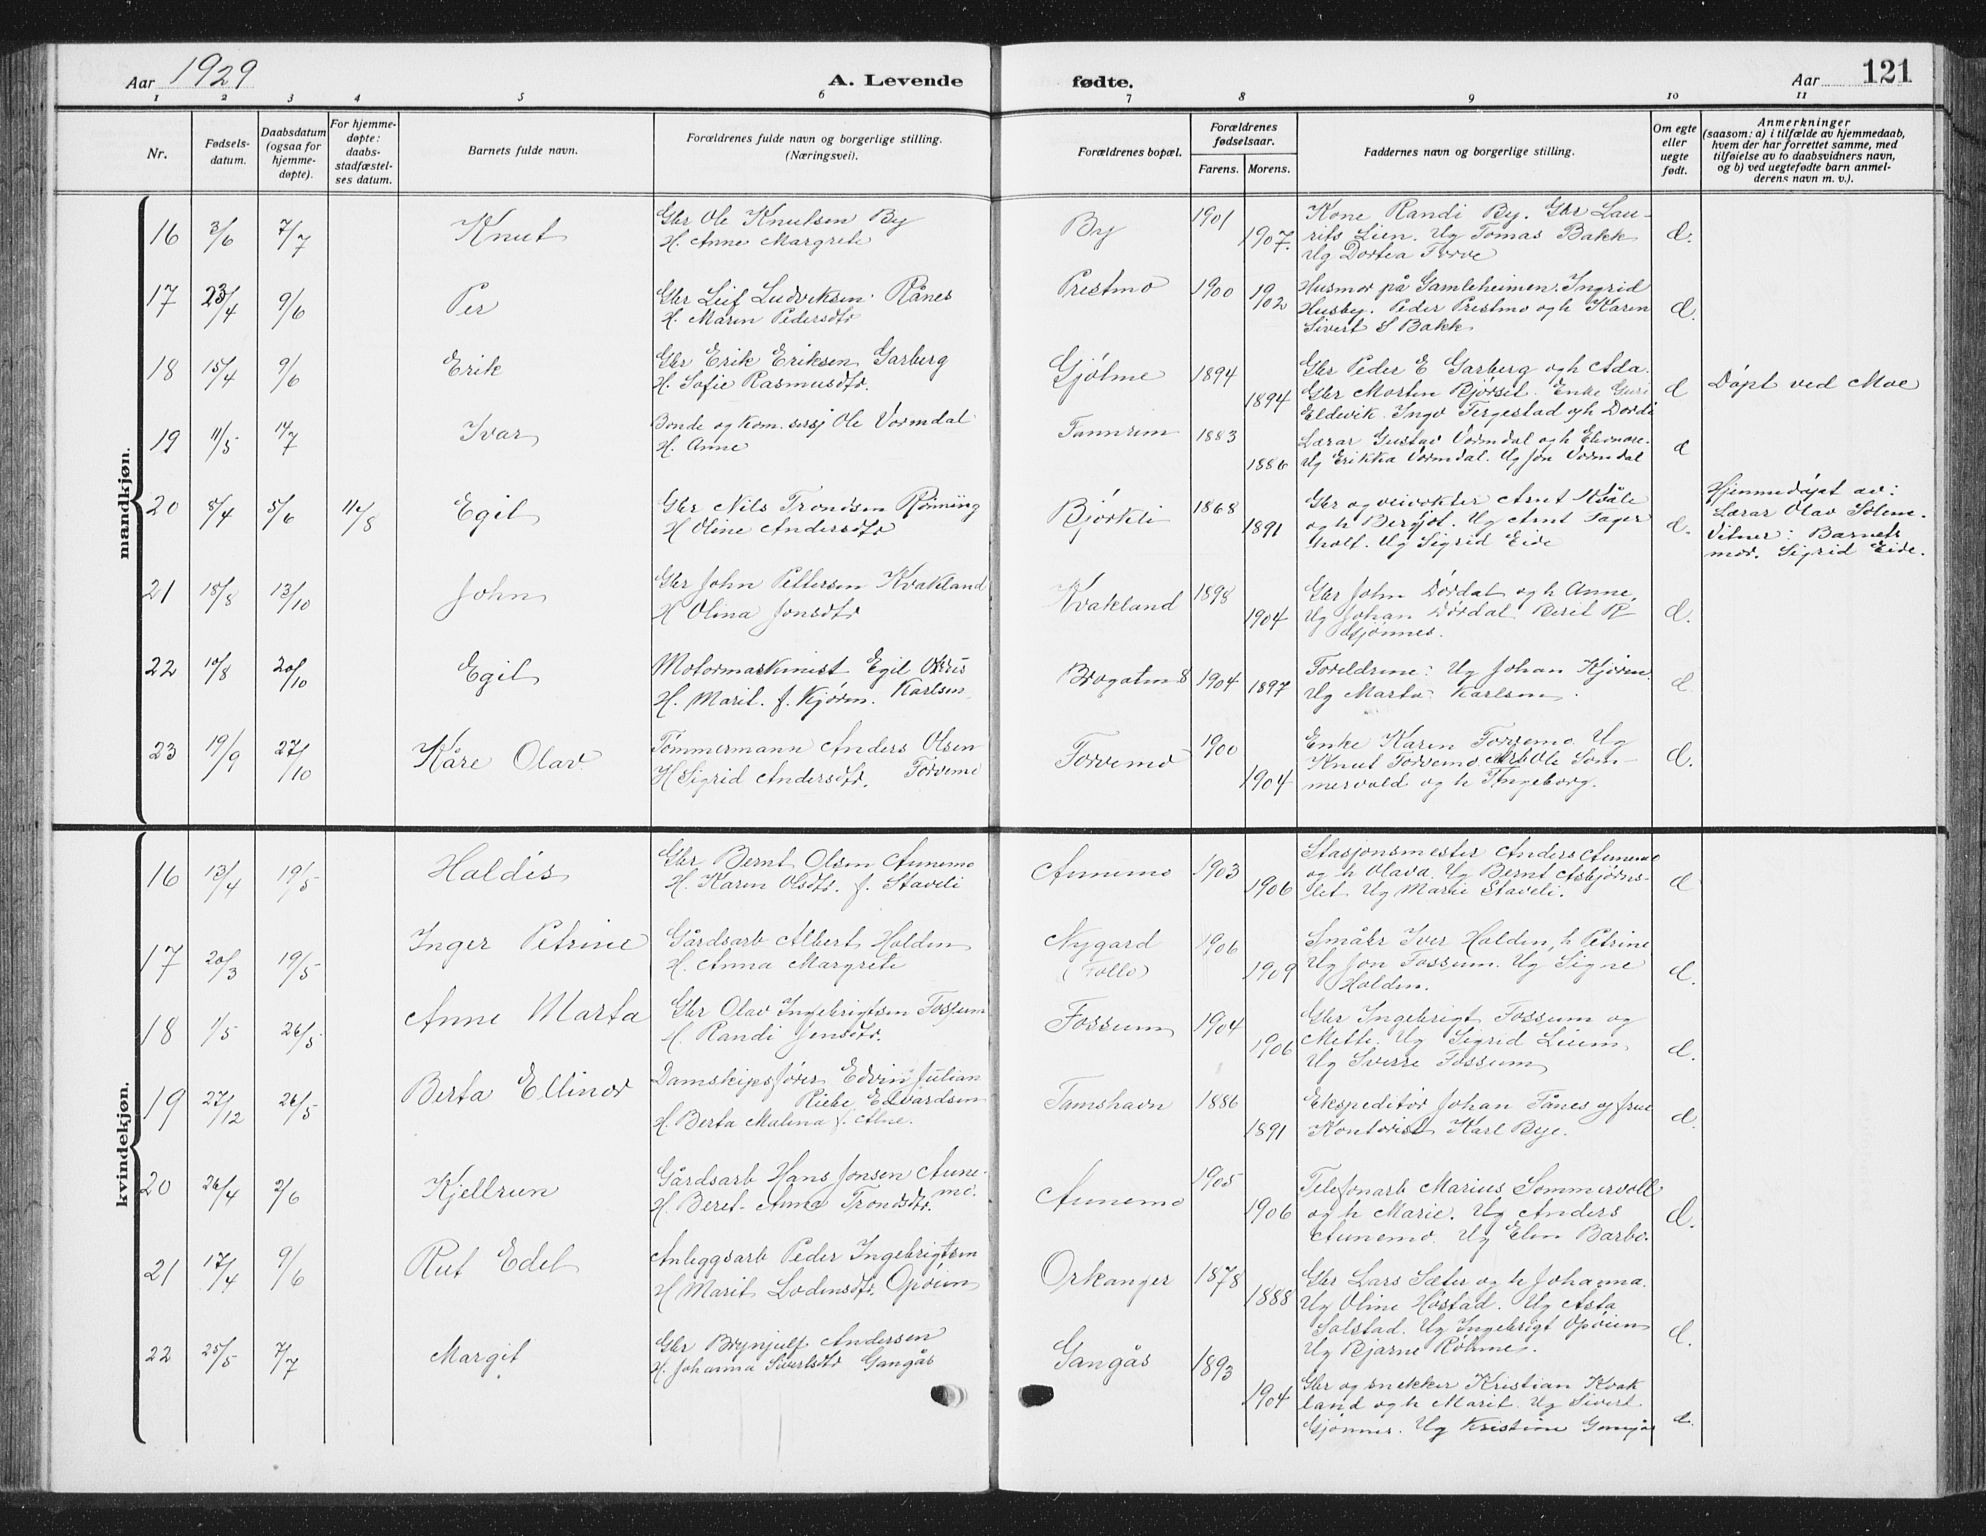 Aar 1929
A. Levende
fødte.
Aar
121
1 2 3 4 5 6 7 8 9 10 11
Nr.
Fødsels-
datum.
Daabsdatum
(ogsaa for
hjemme-
døpte).
For hjemme-
døpte:
daabs-
stadfæstel-
ses datum.
Barnets fulde navn.
Forældrenes fulde navn og borgerlige stilling.
(Næringsvei).
Forældrenes bopæl.
Forældrenes
fødselsaar.
Farens. Morens.
Faddernes navn og borgerlige stilling.
Om egte
eller
uegte
født.
Anmerkninger
(saasom: a) i tilfælde av hjemmedaab,
hvem der har forrettet samme, med
tilføielse av to daabsvidners navn,
og b) ved uegtefødte barn anmel-
derens navn m. v.).
mandkjøn.
16 3/6 7/7 Knut
Gbr Ole Knutsen By
H. Anne Margrete
By 1901 1907.
Kone Randi By. Gbr Lau-
rits Lien. Ug Tomas Bakk
Ug Dortea Torve
d.
17 23/4 9/6 Per
Gbr Leif Ludviksen Rånes
H. Maren Pedersdtr
Prestmo 1900 1902
Husmor på Gamleheimen. Ingrid
Husby. Peder Prestmo og h Karen
Sivert S Bakk
d.
18 15/4 9/6 Erik
Gbr Erik Eriksen Garberg
H. Sofie Rasmusdtr.
Gjølme 1894 1894
Gbr Peder E Garberg og h Ada.
Gbr Morten Bjørset. Enke Guri
Eldevik. Ingv Tergestad og h Dordi
d
Døpt ved Moe
19 11/5 14/7 Ivar
Bonde og kom. Ole Vormdal
H. Anne
Tannem 1883 1886
Lærar Gustav Vormdal og h Eleonore.
Ug Erikka Vormdal. Ug Jon Vormdal
d
20 8/4 5/6 11/8 Egil
Gbr Nils Trondsen Rønning
H Oline Andersdtr
Bjørkli 1868 1891
Gbr og veivokter Arnt Kvåle
og h Bergjot. Ug Arnt Fager
holt. Ug Sigrid Eide
d.
Hjemmedøpt av:
Lærar Olav Solem.
Vitner: Barnets
mor. Sigrid Eide.
21 18/8 13/10 John
Gbr John Pettersen Kvakland
H Olina Jonsdtr
Kvakland 1898 1904
Gbr John Dørdal og h Anne,
Ug Johan Dørdal Berit R
Gjønnes.
d.
22 10/8 20/10 Egil
Motormaskinist Egil
H. Marit. f. Kjøren. Karlsen
1904 1897
Foreldrene: Ug Johan Kjøren.
Ug Marta Karlsen.
d.
23 19/9 27/10 Kåre Olav
Tømmermann Anders Olsen
H Sigrid Andersdtr. Torvemo
Torvemo 1900 1904
Enke Karen Torvemo. Ug
Knut Torvemo Arb Ole Som-
mervold og h Ingeborg.
d.
kvindekjøn.
16 13/4 19/5 Haldis
Gbr Bernt Olsen Aunemo
H. Karen Olsdtr. f. Staveli
Aunemo 1903 1906
Stasjonsmester Anders Aunemo
og h Olava. Ug Bernt Asbjørns-
let Ug Marie Staveli.
d
17 20/3 19/5 Inger Petrine
Gårdsarb Albert Holden
H. Anna Margrete
Nygard
(Follo)
1906 1909
Småbr Iver Holden, h Petrine
Ug Jon Fossum. Ug Signe
Holden.
d.
18 1/5 26/5 Anne Marta
Gbr Olav Ingebrigtsen Fossum
H. Randi Jensdtr.
Fossum 1904 1906
Gbr Ingebrigt Fossum og
Mette. Ug Sigrid Lium
Ug Sverre Fossum
d.
19 27/12 26/5 Berta Ellinor
Damskipsfører Edvin Julian
Riebe Edvardsen
H. Berta Malena f. Alne.
Tamshavn 1886 1891
Ekspeditør Johan Fånes og frue
Kontorist Karl Bye.
d.
20 26/4 2/6 Kjellrun
Gårdsarb Hans Jonsen Aune-
mo.
H. Beret-Anna Trondsdtr.
Aunemo 1905 1906
Telefonarb Marius Sommervoll
og h Marie. Ug Anders
Aunemo. Ug Elen Barbo.
d.
21 17/4 9/6 Rut Edel
Anleggsarb Peder Ingebrigtsen
H Marit Lodensdtr. Opøien
Orkanger 1878 1888
Gbr Lars Sæter og h Johanna.
Ug Oline Høstad. Ug Asta
Solstad. Ug Ingebrigt Opøien
Ug Bjarne Røhme.
d.
22 25/5 7/7 Margit
Gbr Brynjulf Andersen
H. Johanna Sivertsdtr Gangås
Gangås 1893 1904
Gbr og snekker Kristian Kvak
land og h Marit. Ug Sivert
Gjønnes. Ug Kristine Gangås
d.